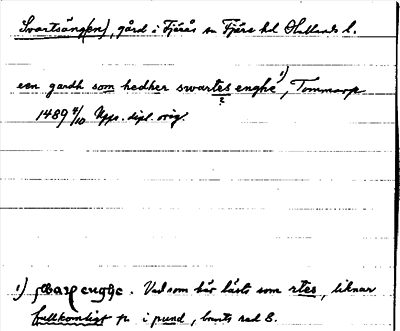 Svartsäng(en), gård i Fjärås sn Fjäre hd Hallands l.
een gardh som hedher swartes enghe 1), Tommarp
?
1489 4/10 Upps. dipl. orig.
1) swartes enghe. Vad som här lästs som rtes, liknar
fullkomligt p i pund, brevets rad 8.